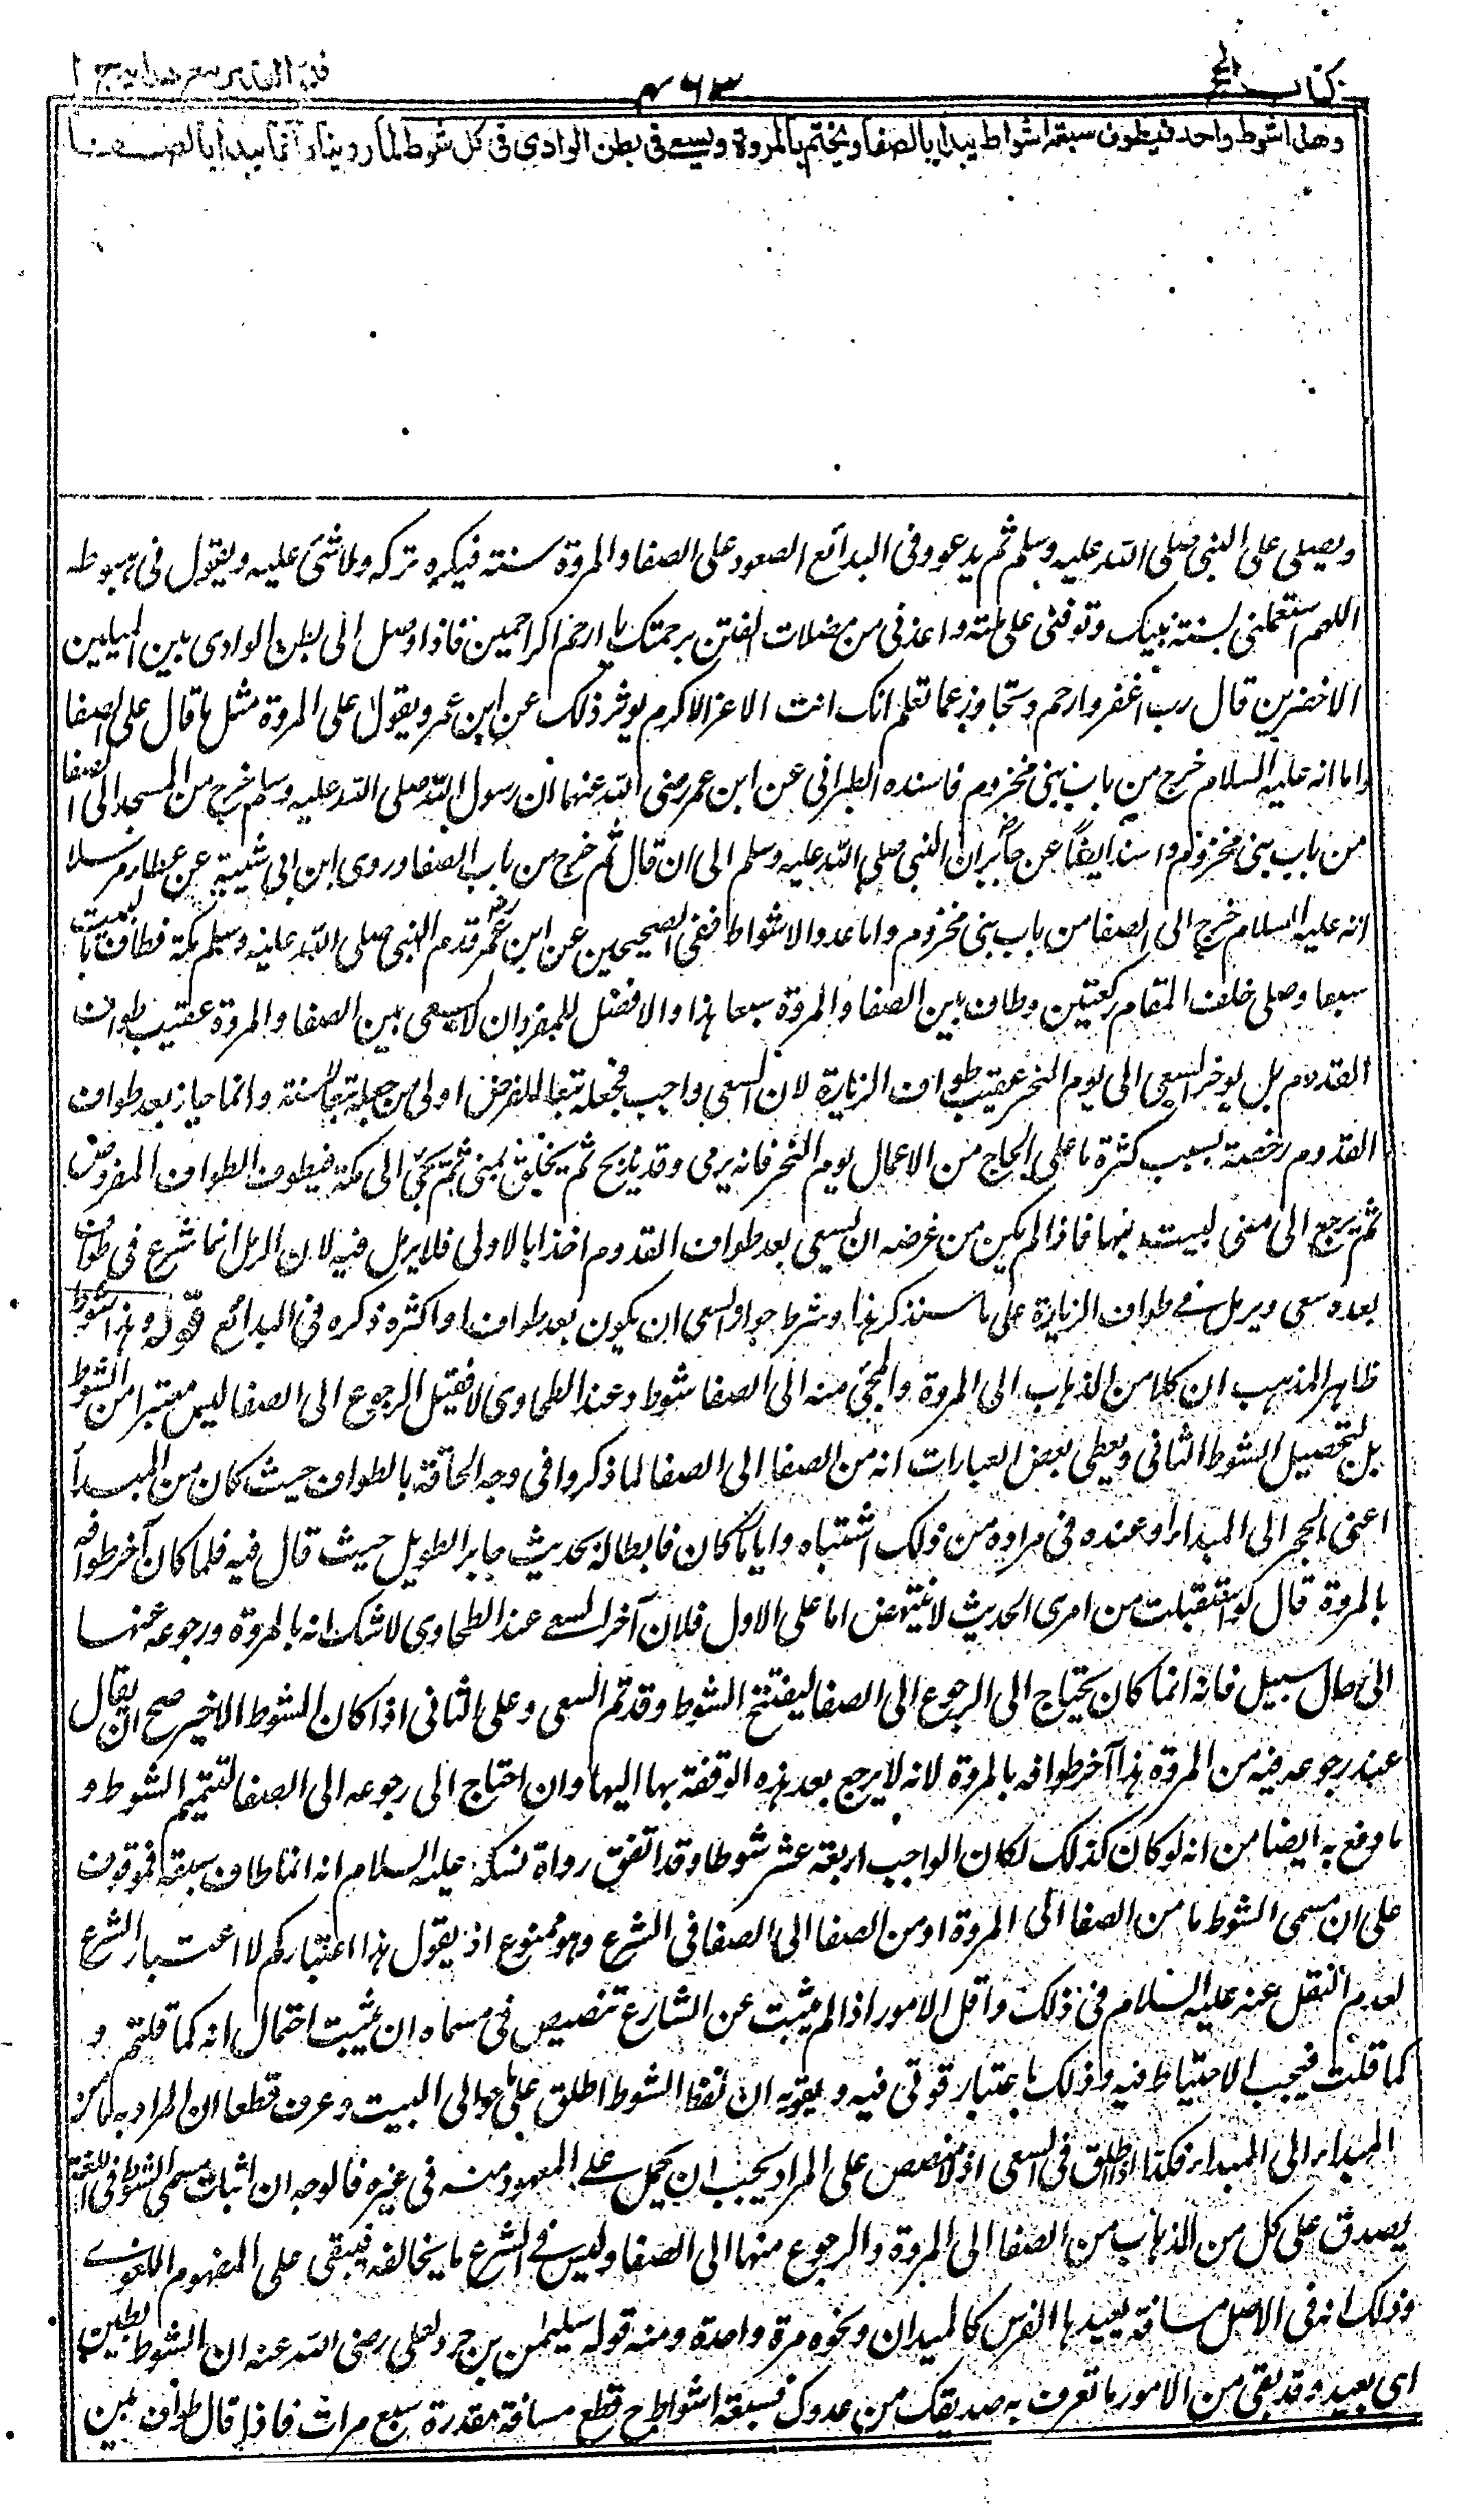 كتاب الحج
٤٦٣
فتح القدير مع هدايه ج ١
وهذا شوط واحد فيطوف سبعة اشواط يبدأ بالصفا ويختم بالمروة ويسعى في بطن الوادي في كل شوط لما روينا وانما يبدأ بالصفا
ويصلى على النبي صلى الله عليه وسلم ثم يدعو وفى البدائع الصعود على الصفا والمروة سنة فيكره تركه ولا شئ عليه ويقول فى هبوطه
اللهم استعملنى بسنة نبيك وتوفنى على ملته واعذنى من مضلات الفتن برحمتك يا ارحم الراحمين فاذا وصل الى بطن الوادى بين الميلين
الاخضرين قال رب اغفر وارحم وتجاوز عما تعلم انك انت الاعز الاكرم يوثر ذلك عن ابن عمر ويقول على المروة مثل ما قال على الصفا
واما انه عليه السلام خرج من باب بنى مخزوم فاسنده الطبرانى عن ابن عمر رضى الله عنهما ان رسول الله صلى الله عليه وسلم خرج من المسجد الى الصفا
من باب بنى مخزوم واسند ايضاً عن جابر ان النبى صلى الله عليه وسلم الى ان قال ثم خرج من باب الصفا وروى ابن ابى شيبة عن عطاء مرسلا
انه عليه السلام خرج الى الصفا من باب بنى مخزوم واما عدد الاشواط ففى الصحيحين عن ابن عمر رضـ قدم النبى صلى الله عليه وسلم مكة فطاف بالبيت
سبعا وصلى خلف المقام ركعتين وطاف بين الصفا والمروة سبعا هذا والافضل للمفرد ان لا يسعى بين الصفا والمروة عقيب طواف
القدوم بل يوخر السعى الى يوم النحر عقيب طواف الزيارة لان السعى واجب فجعله تبعا للفرض اولى من جعله تبعا للسنة وانما جاز بعد طواف
القدوم رخصة بسبب كثرة ما على الحاج من الاعمال يوم النحر فانه يرمى وقد يذبح ثم يحلق بمنى ثم يجئ الى مكة فيطوف الطواف المفروض
ثم يرجع الى منى ليبيت بها فاذا لم يكن من غرضه ان يسعى بعد طواف القدوم اخذا بالاولى فلا يرمل فيه لان الرمل انما شرع فى طواف
بعده سعى ويرمل فى طواف الزيارة على ما سنذكر هذا وشرط جواز السعى ان يكون بعد طواف او اكثره ذكره فى البدائع قوله وهذا شوط
ظاهر المذهب ان كلا من الذهاب الى المروة والمجئ منه الى الصفا شوط وعند الطحاوى لا فقيل الرجوع الى الصفا ليس معتبرا من الشوط
بل لتحصيل الشوط الثانى ويعطى بعض العبارات انه من الصفا الى الصفا لما ذكروا فى وجه الحاقه بالطواف حيث كان من المبدأ
اعنى الحجر الى المبداء وعنده فى مراده من ذلك اشتباه وايا ما كان فابطاله بحديث جابر الطويل حيث قال فيه فلما كان آخر طوافه
بالمروة قال لو استقبلت من امرى الحديث لا ينتهض اما على الاول فلان آخر السعى عند الطحاوى لا شك انه بالمروة ورجوعه عنها
الى حال سبيل فانه انما كان يحتاج الى الرجوع الى الصفا ليفتتح الشوط وقد تم السعى وعلى الثانى اذا كان الشوط الاخير صح ان يقال
عند رجوعه فيه من المروة هذا آخر طوافه بالمروة لانه لا يرجع بعد هذه الوقفة بها اليها وان احتاج الى رجوعه الى الصفا لتتميم الشوط و
ما دفع به ايضا من انه لو كان كذلك لكان الواجب اربعة عشر شوطا وقد اتفق رواة نسكه عليه السلام انه انما طاف سبعة فموقوف
على ان مسمى الشوط ما من الصفا الى المروة او من الصفا الى الصفا فى الشرع وهو ممنوع اذ يقول هذا اعتباركم لا اعتبار الشرع
لعدم النقل عنه عليه السلام فى ذلك واقل الامور اذا لم يثبت عن الشارع تنصيص فى مسماه ان يثبت احتمال انه كما قلتم و
كما قلت فيجب الاحتياط فيه وذلك باعتبار قوتى فيه ويقويه ان لفظ الشوط اطلق على ما حوالى البيت وعرف قطعا ان المراد به ما من
المبداء الى المبداء فكذا اذا اطلق فى السعى اذ لا منصص على المراد يجب ان يحمل على المعهود منه فى غيره فالوجه ان اثبات مسمى الشوط فى اللغة
يصدق على كل من الذهاب من الصفا الى المروة والرجوع منها الى الصفا وليس فى الشرع ما يخالفه فيبقى على المفهوم اللغوى
وذلك انه فى الاصل مسافة يعيدها الفرس كالميدان ونحوه مرة واحدة ومنه قوله سليمن بن جرد لعلى رضى الله عنه ان الشوط بطين
اى بعيد وقد بقى من الامور ما تعرف به صديقك من عدوك فسبعة اشواط ح قطع مسافة مقدرة سبع مرات فاذا قال طواف بين